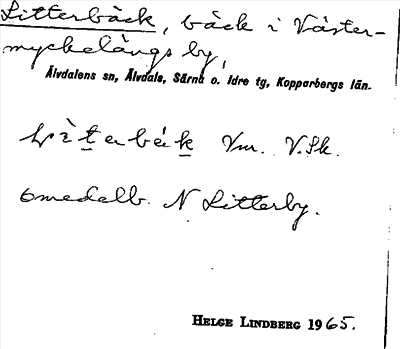 Litterbäck, bäck i Väster-
myckelängs by,
Älvdalens sn, Älvdals, Särna o. Idre tg, Kopparbergs län.
Vm. V.Sk.
omedelb. N Litterby.
HELGE LINDBERG 1965.